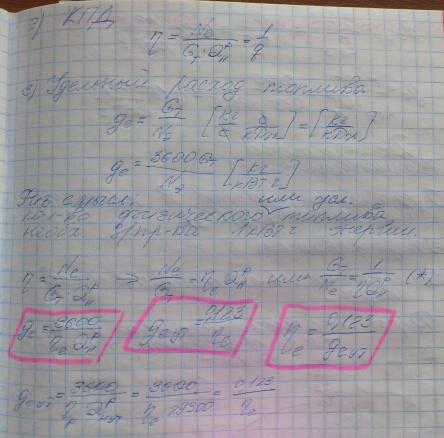 2) КПД
η = Ne / (Gт · Qнр) = 1/q
3) Удельный расход топлива
ge = Gт / Ne [кг/с · с/кДж] = [кг/кДж]
ge = 3600 Gт / Nэ [кг/кВт·ч]
Физ. смысл: или усл.
кол-во физического топлива
необх. д/пр-ва 1 кВт·ч энергии.
η = Ne / (Gт Qнр) → Ne / Gт = ηe Qнр или Gт / Ne = 1 / (η Qнр) (*)
ge = 3600 / (ηe Qнр) ge ут = 0,123 / ηe ηe = 0,123 / ge ут
ge ут = 3600 / (ηe Qн ут) = 3600 / (ηe 29300) = 0,123 / ηe